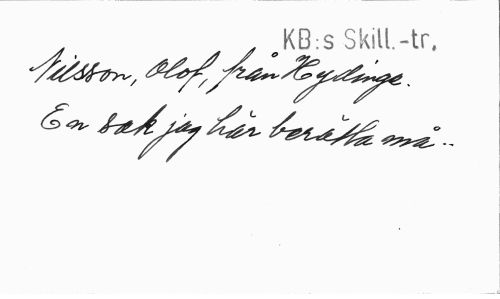 KB:s Skill.-tr.
Nilsson, Olof, från Hydinge.
En sak jag här berätta må..